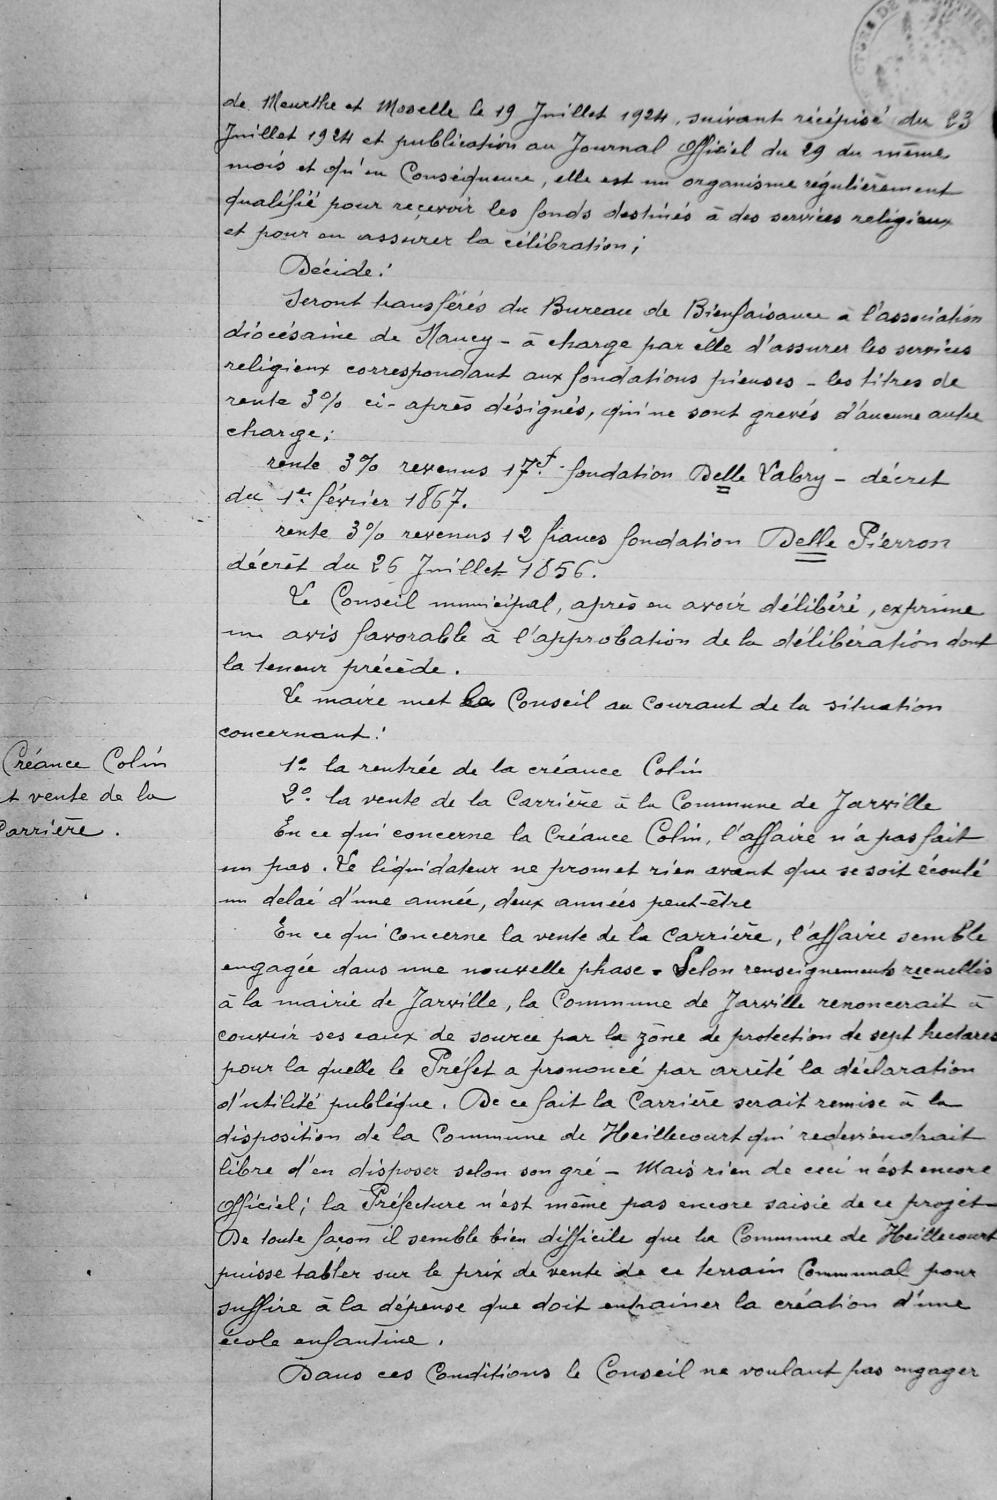 de Meurthe et Moselle le 19 Juillet 1924, suivant récépissé du 23
Juillet 1924 et publication au Journal Officiel du 29 du même
mois et qu'en Conséquence, elle est un organisme régulièrement
qualifié pour recevoir les fonds destinés à des services religieux
et pour en assurer la célébration;
Décide:
Seront transférés du Bureau de Bienfaisance à l'association
diocésaine de Nancy - à charge par elle d'assurer les services
religieux correspondant aux fondations pieuses - les titres de
rente 3% ci-après désignés, qui ne sont grevés d'aucune autre
charge;
rente 3% revenus 17f. fondation Delle Valory - décret
du 1er février 1867.
rente 3% revenus 12 francs fondation Delle Pierron
décret du 26 Juillet 1856.
Le Conseil municipal, après en avoir délibéré, exprime
un avis favorable à l'approbation de la délibération dont
la teneur précède.
Le maire met le Conseil au courant de la situation
concernant:
Créance Colin
et vente de la
Carrière.
1º la rentrée de la créance Colin
2º la vente de la Carrière à la Commune de Jarville
En ce qui concerne la Créance Colin, l'affaire n'a pas fait
un pas. Le liquidateur ne promet rien avant que se soit écoulé
un délai d'une année, deux années peut-être
En ce qui concerne la vente de la Carrière, l'affaire semble
engagée dans une nouvelle phase. Selon renseignements recueillis
à la mairie de Jarville, la Commune de Jarville renoncerait à
couvrir ses eaux de source par la zône de protection de sept hectares
pour la quelle le Préfet a prononcé par arrêté la déclaration
d'utilité publique. De ce fait la Carrière serait remise à la
disposition de la Commune de Heillecourt qui redeviendrait
libre d'en disposer selon son gré - Mais rien de ceci n'est encore
Officiel; la Préfecture n'est même pas encore saisie de ce projet
De toute façon il semble bien difficile que la Commune de Heillecourt
puisse tabler sur le prix de vente de ce terrain Communal pour
suffire à la dépense que doit entrainer la création d'une
école enfantine.
Dans ces Conditions le Conseil ne voulant pas engager